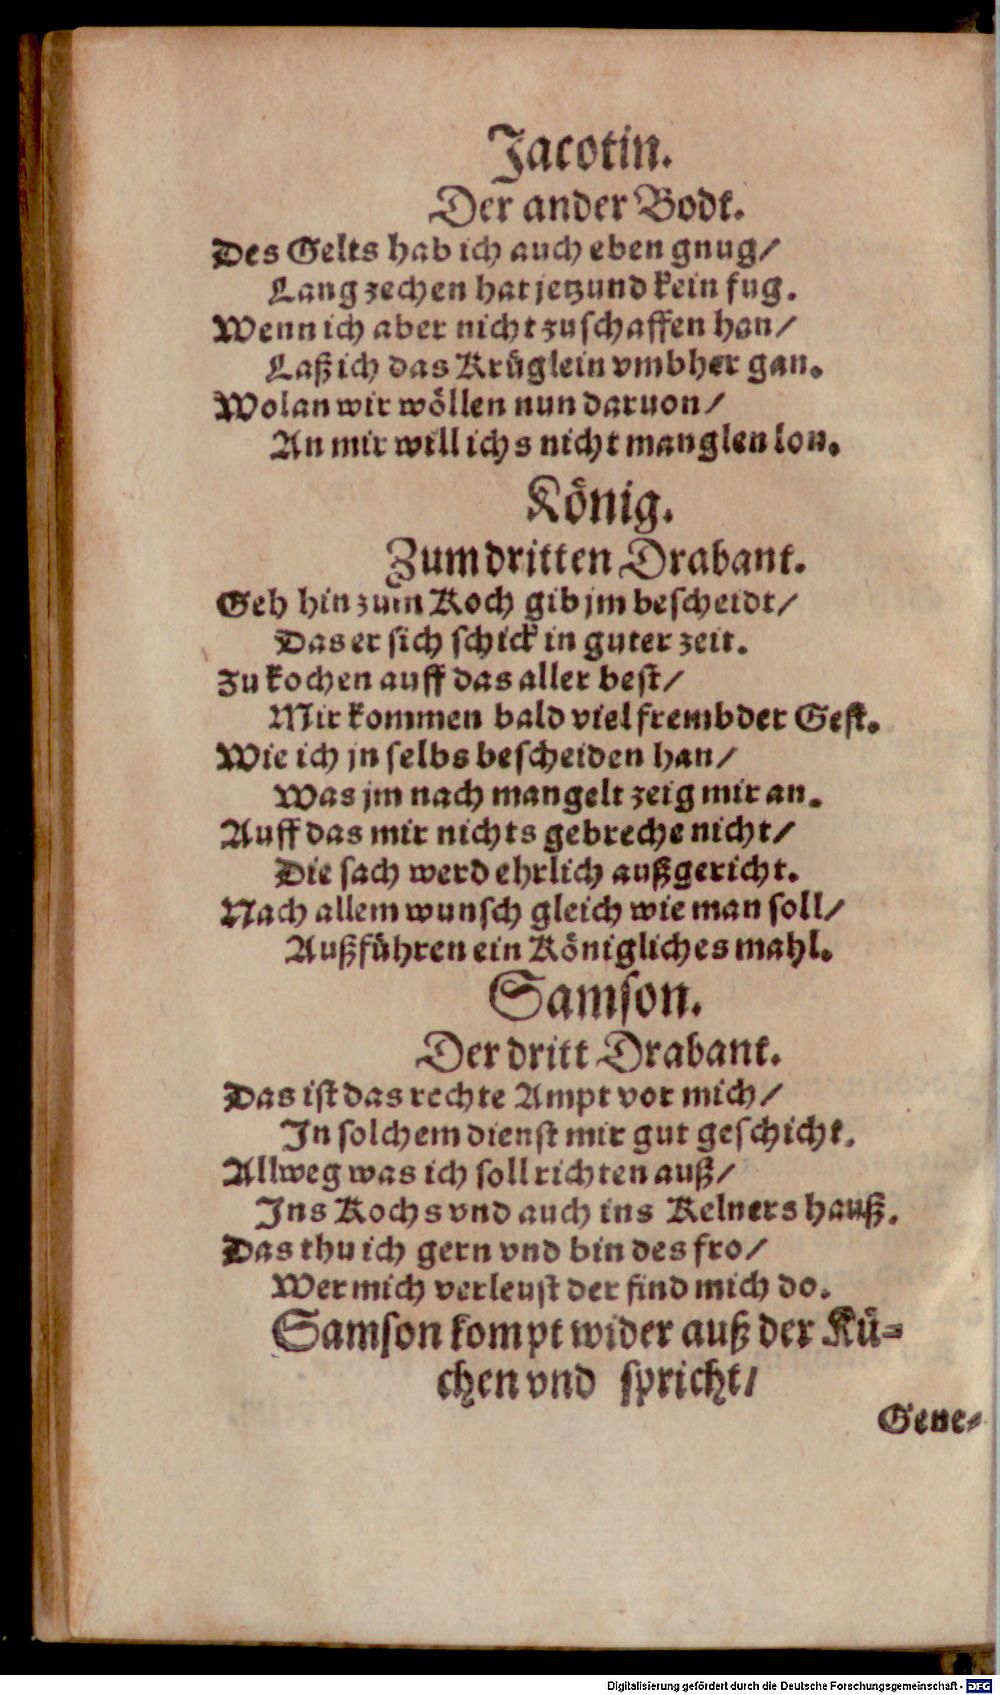 Jacotin.
Der ander Bodt.
Des Gelts hab ich auch eben gnug/
Lang zechen hat jetzund kein fug.
Wenn ich aber nicht zuschaffen han/
Laß ich das Krüglein vmbher gan.
Wolan wir wöllen nun daruon/
An mir will ichs nicht manglen lon.
König.
Zum dritten Drabant.
Geh hin zum Koch gib jm bescheidt/
Das er sich schick in guter zeit.
Zu kochen auff das aller best/
Mir kommen bald viel frembder Gest.
Wie ich jn selbs bescheiden han/
Was jm nach mangelt zeig mir an.
Auff das mir nichts gebreche nicht/
Die sach werd ehrlich außgericht.
Nach allem wunsch gleich wie man soll/
Außführen ein Königliches mahl.
Samson.
Der dritt Drabant.
Das ist das rechte Ampt vor mich/
In solchem dienst mir gut geschicht.
Allweg was ich soll richten auß/
Ins Kochs vnd auch ins Kelners hauß.
Das thu ich gern vnd bin des fro/
Wer mich verleust der find mich do.
Samson kompt wider auß der Kü⸗
chen vnd spricht/
Gene⸗
Digitalisierung gefördert durch die Deutsche Forschungsgemeinschaft - DFG